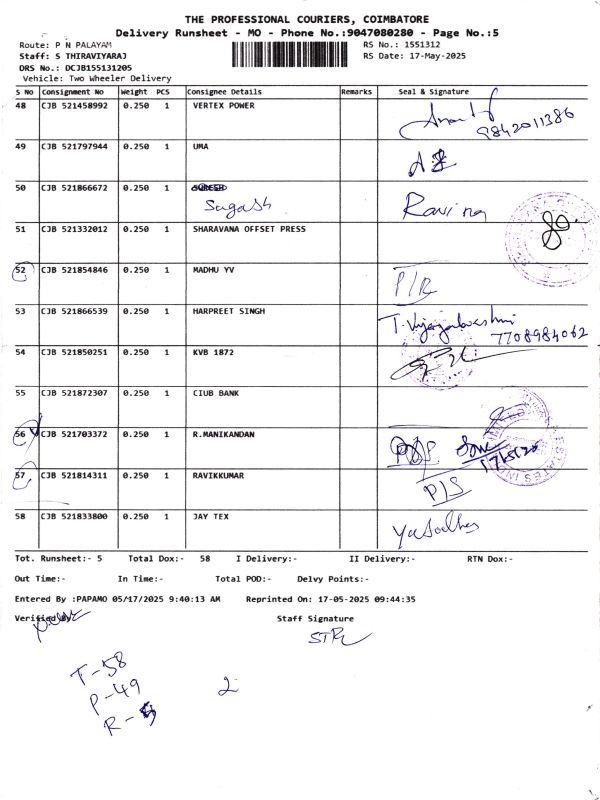 THE PROFESSIONAL COURIERS, COIMBATORE
Delivery Runsheet - MO - Phone No.:9047080280 - Page No.:5
Route: P N PALAYAM RS No.: 1551312
Staff: S THIRAVIYARAJ RS Date: 17-May-2025
DRS No.: DCJB155131205
Vehicle: Two Wheeler Delivery
S No Consignment No Weight PCS Consignee Details Remarks Seal & Signature
48 CJB 521458992 0.250 1 VERTEX POWER
9842011386
49 CJB 521797944 0.250 1 UMA
50 CJB 521866672 0.250 1
Sugash
51 CJB 521332012 0.250 1 SHARAVANA OFFSET PRESS
52 CJB 521854846 0.250 1 MADHU YV P/R
53 CJB 521866539 0.250 1 HARPREET SINGH
7708984062
54 CJB 521850251 0.250 1 KVB 1872
55 CJB 521872307 0.250 1 CIUB BANK
56 CJB 521703372 0.250 1 R.MANIKANDAN
57 CJB 521814311 0.250 1 RAVIKKUMAR
P/S
58 CJB 521833800 0.250 1 JAY TEX
Tot. Runsheet:- 5 Total Dox:- 58 I Delivery:- II Delivery:- RTN Dox:-
Out Time:- In Time:- Total POD:- Delvy Points:-
Entered By :PAPAMO 05/17/2025 9:40:13 AM Reprinted On: 17-05-2025 09:44:35
Verified By Staff Signature
T-58
P-49 2
R-